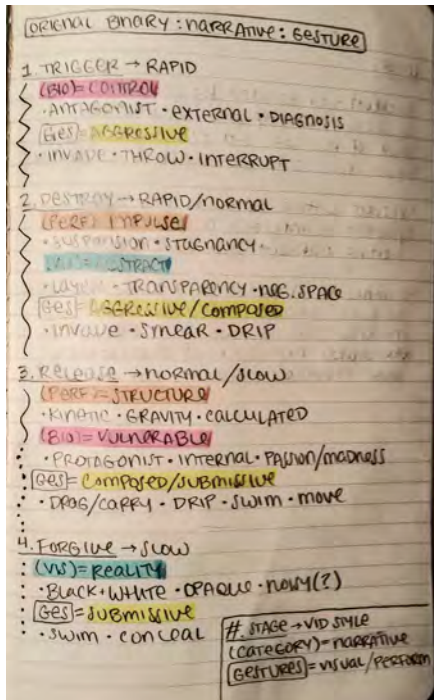 ORIGNAL BINARY : NARRATIVE : GESTURE
1. TRIGGER → RAPID
(BIO) = CONTROL
· ANTAGONIST · EXTERNAL · DIAGNOSIS
[Ges] = AGGRESSIVE
· INVADE · THROW · INTERRUPT
2. DESTROY → RAPID/NORMAL
(PERF) IMPULSE
· SUSPENSION · STAGNANCY ·
(VIS) = ABSTRACT
· LAYERS · TRANSPARENCY · NEG. SPACE
[Ges] = AGGRESSIVE/COMPOSED
· INVADE · SMEAR · DRIP
3. RELEASE → NORMAL/SLOW
(PERF) = STRUCTURE
· KINETIC · GRAVITY · CALCULATED
(BIO) = VULNERABLE
· PROTAGONIST · INTERNAL · PASSION/MADNESS
[Ges] = COMPOSED/SUBMISSIVE
· DRAG/CARRY · DRIP · SWIM · MOVE
4. FORGIVE → SLOW
(VIS) = REALITY
· BLACK · WHITE · OPAQUE · (?)
[Ges] = SUBMISSIVE
· SWIM · CONCEAL
#. STAGE → VID STYLE
(CATEGORY) = NARRATIVE
[GESTURES] = VISUAL/PERFORM